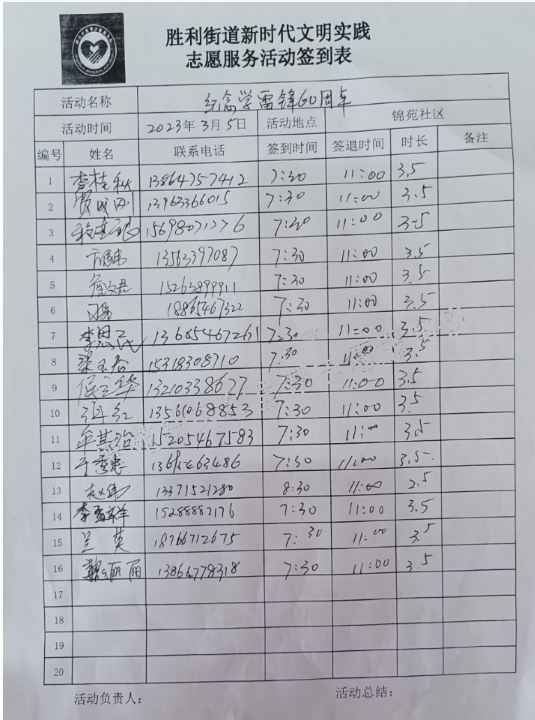 胜利街道新时代文明实践
志愿服务活动签到表
活动名称 纪念学雷锋60周年
活动时间 2023年3月5日 活动地点 锦苑社区
编号 姓名 联系电话 签到时间 签退时间 时长 备注
1 李桂秋 13864757412 7:30 11:00 3.5
2 13963366015 7:30 11:00 3.5
3 15698071776 7:30 11:00 3.5
4 13563397087 7:30 11:00 3.5
5 15263899911 7:30 11:00 3.5
6 18865467322 7:30 11:00 3.5
7 李思民 13685467261 7:30 11:00 3.5
8 15318308710 7:30 11:00 3.5
9 侯立华 13210338677 7:30 11:00 3.5
10 张红 13561068853 7:30 11:00 3.5
11 15205467583 7:30 11:00 3.5
12 7:30 11:00 3.5
13 赵伟 13371521280 8:30 11:00 2.5
14 15288882176 7:30 11:00 3.5
15 兰英 18766712675 7:30 11:00 3.5
16 魏丽丽 13864778318 7:30 11:00 3.5
17
18
19
20
活动负责人： 活动总结：